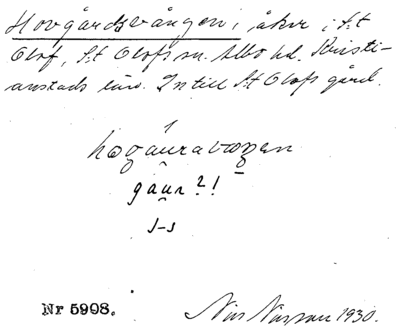 Hovgårdsvången, åker i S:t
Olof, S:t Olofs sn. Albo hd. Kristi-
anstads län. Intill S:t Olofs gård.
gåur?!
Nr 5908.
Nils Nilsson 1930.